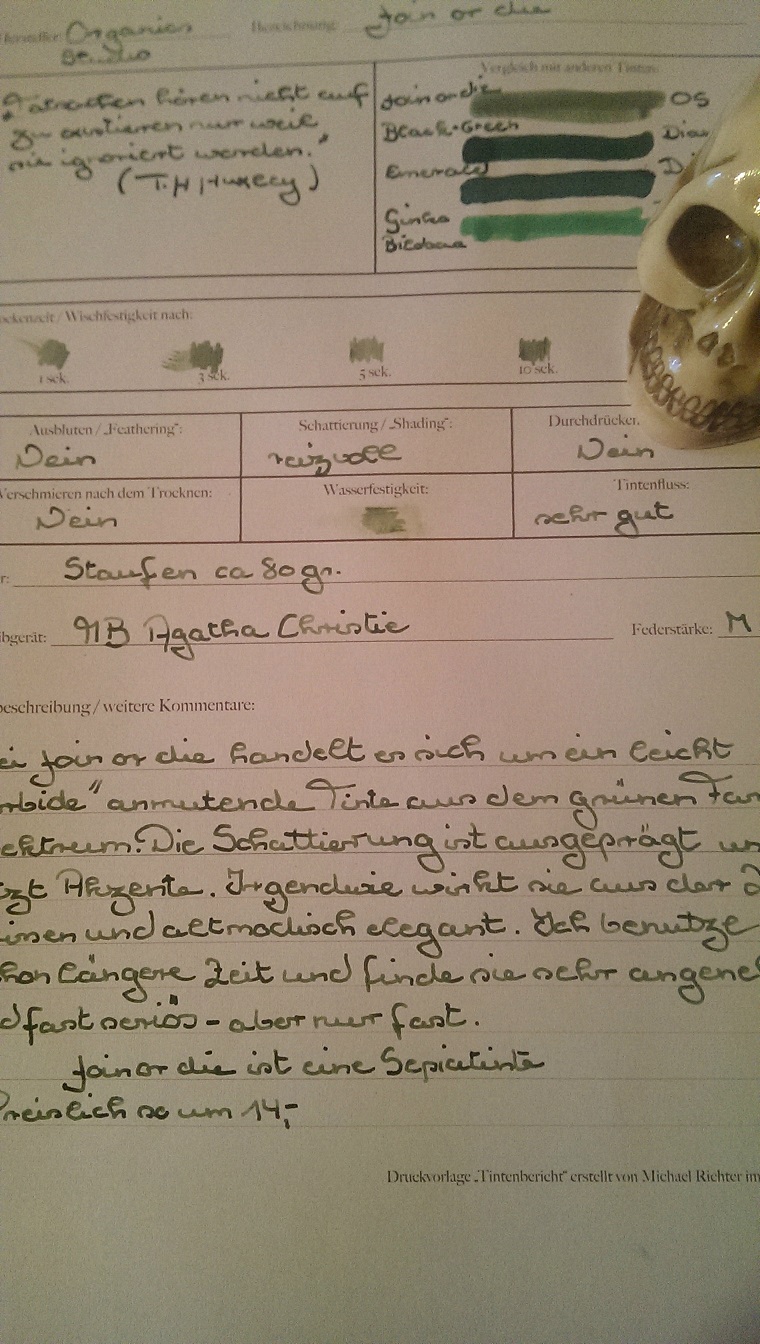 Hersteller: Organics Bezeichnung: Join or die
Studio
Vergleich mit anderen Tinten:
"Tatsachen hören nicht auf
zu existieren nur weil
sie ignoriert werden."
(T.H Huxley)
Join or die OS
Black-Green Diam
Emerald D
Ginkgo
Biloboa
ockenzeit / Wischfestigkeit nach:
1 sek. 3 sek. 5 sek. 10 sek.
Ausbluten / „Feathering“: Schattierung / „Shading“: Durchdrücken
Nein reizvoll Nein
Verschmieren nach dem Trocknen: Wasserfestigkeit: Tintenfluss:
Nein sehr gut
r: Staufen ca 80 gr.
ibgerät: MB Agatha Christie Federstärke: M
beschreibung / weitere Kommentare:
ei Join or die handelt es sich um ein leicht
rbide" anmutende Tinte aus dem grünen Far
ektrum. Die Schattierung ist ausgeprägt un
zt Akzente. Irgendwie wirkt sie aus der Z
und altmodisch elegant. Ich benutze
hon längere Zeit und finde sie sehr angene
d fast seriös - aber nur fast.
Join or die ist eine Sepiatinte
Preislich so um 14,-
Druckvorlage „Tintenbericht“ erstellt von Michael Richter im